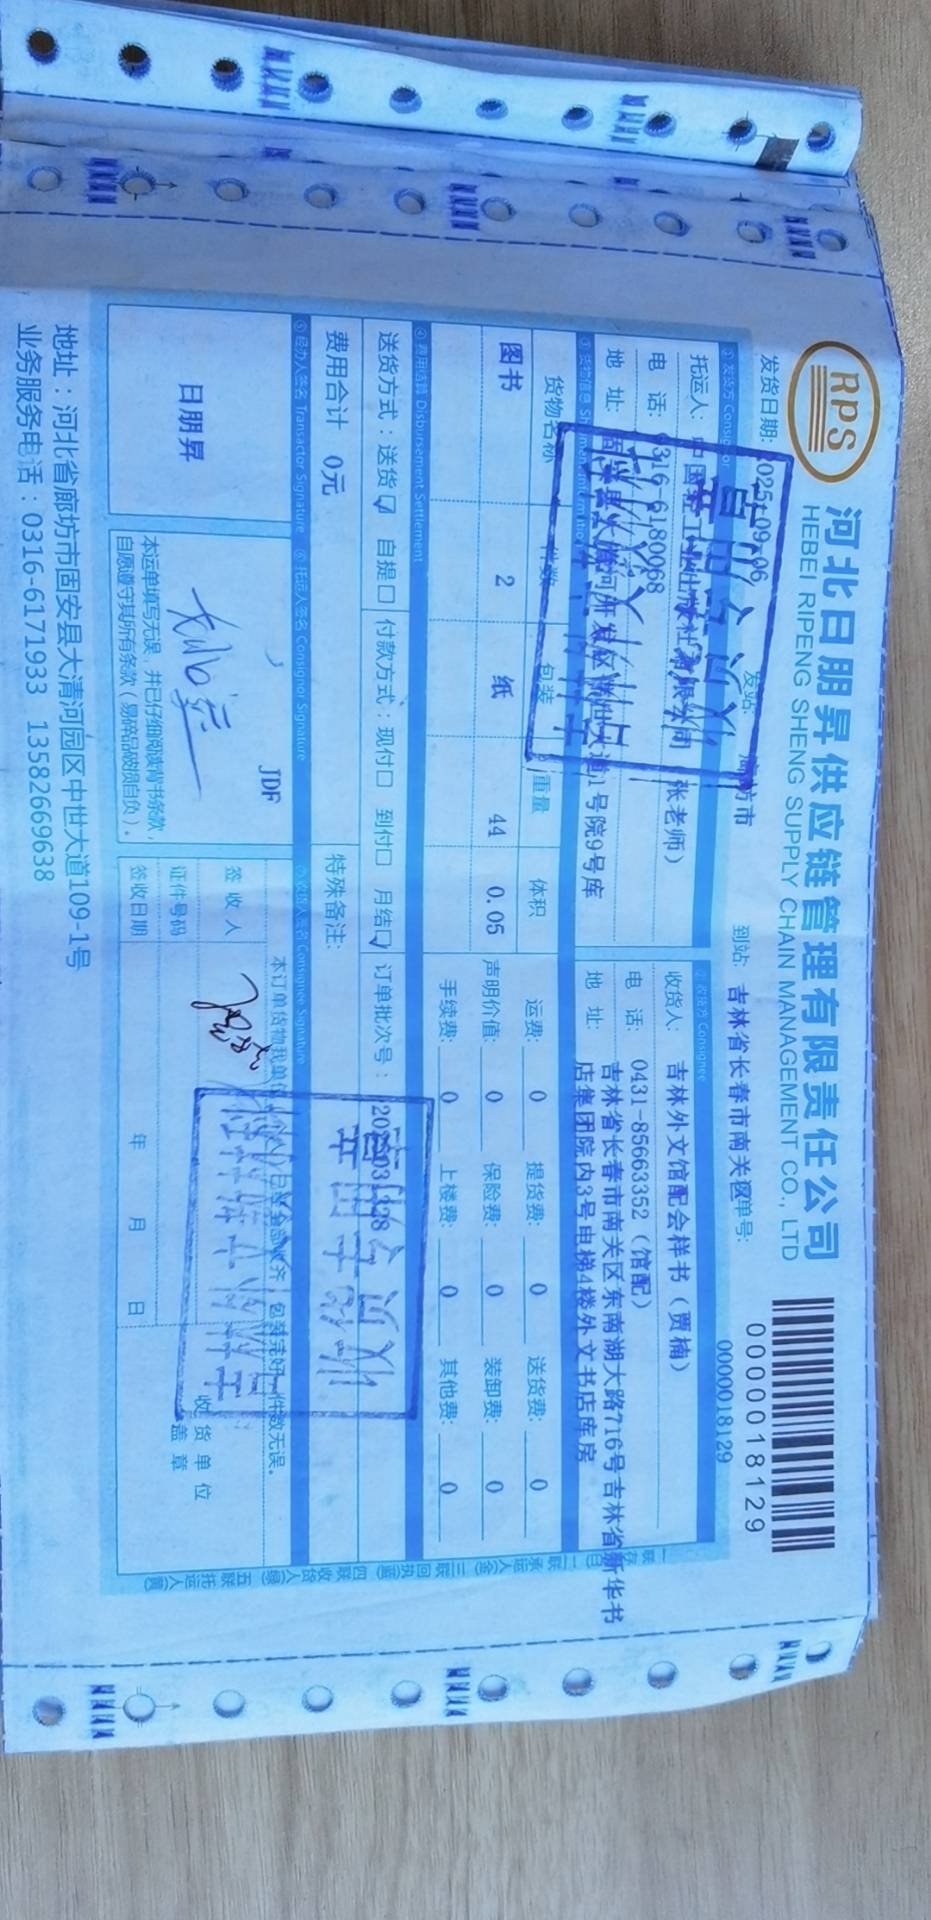 RPS
河北日朋昇供应链管理有限责任公司
HEBEI RIPENG SHENG SUPPLY CHAIN MANAGEMENT CO., LTD
0000018129
发货日期: 2025-09-06 发站: 廊坊市 到站: 吉林省长春市南关区 单号: 0000018129
① 发货方 Consignor ②收货方 Consignee
托运人: 中国 有限公司 (张老师) 收货人: 吉林外文馆配会样书 (贾楠)
电 话: 0316-6180068 电 话: 0431-85663352 (馆配)
地 址: 固安县大清河开发区 大道1号院9号库 地 址: 吉林省长春市南关区东南湖大路716号吉林省新华书
店集团院内3号电梯4楼外文书店库房
③ 货物信息
货物名称 件数 包装 重量 体积 运费: 0 提货费: 0 送货费: 0
图书 2 纸 44 0.05 声明价值: 0 保险费: 0 装卸费: 0
手续费: 0 上楼费: 0 其他费: 0
④ 费用结算 Disbursement Settlement
送货方式: 送货 自提 付款方式: 现付 到付 月结 订单批次号:
费用合计 0元 特殊备注:
⑤ 经办人签名 Transactor Signature ⑥ 托运人签名 Consignor Signature ⑦ 收货人签名 Consignee Signature
日朋昇
JDF
本运单填写无误, 并已仔细阅读背书条款,
自愿遵守其所有条款 (易碎品破损自负)。
本订单货物我单位 包装完好 件数无误。
签 收 人
证件号码
签收日期 年 月 日
收 货 单 位
盖 章
地址: 河北省廊坊市固安县大清河园区中世大道109-1号
业务服务电话: 0316-6171933 13582669638